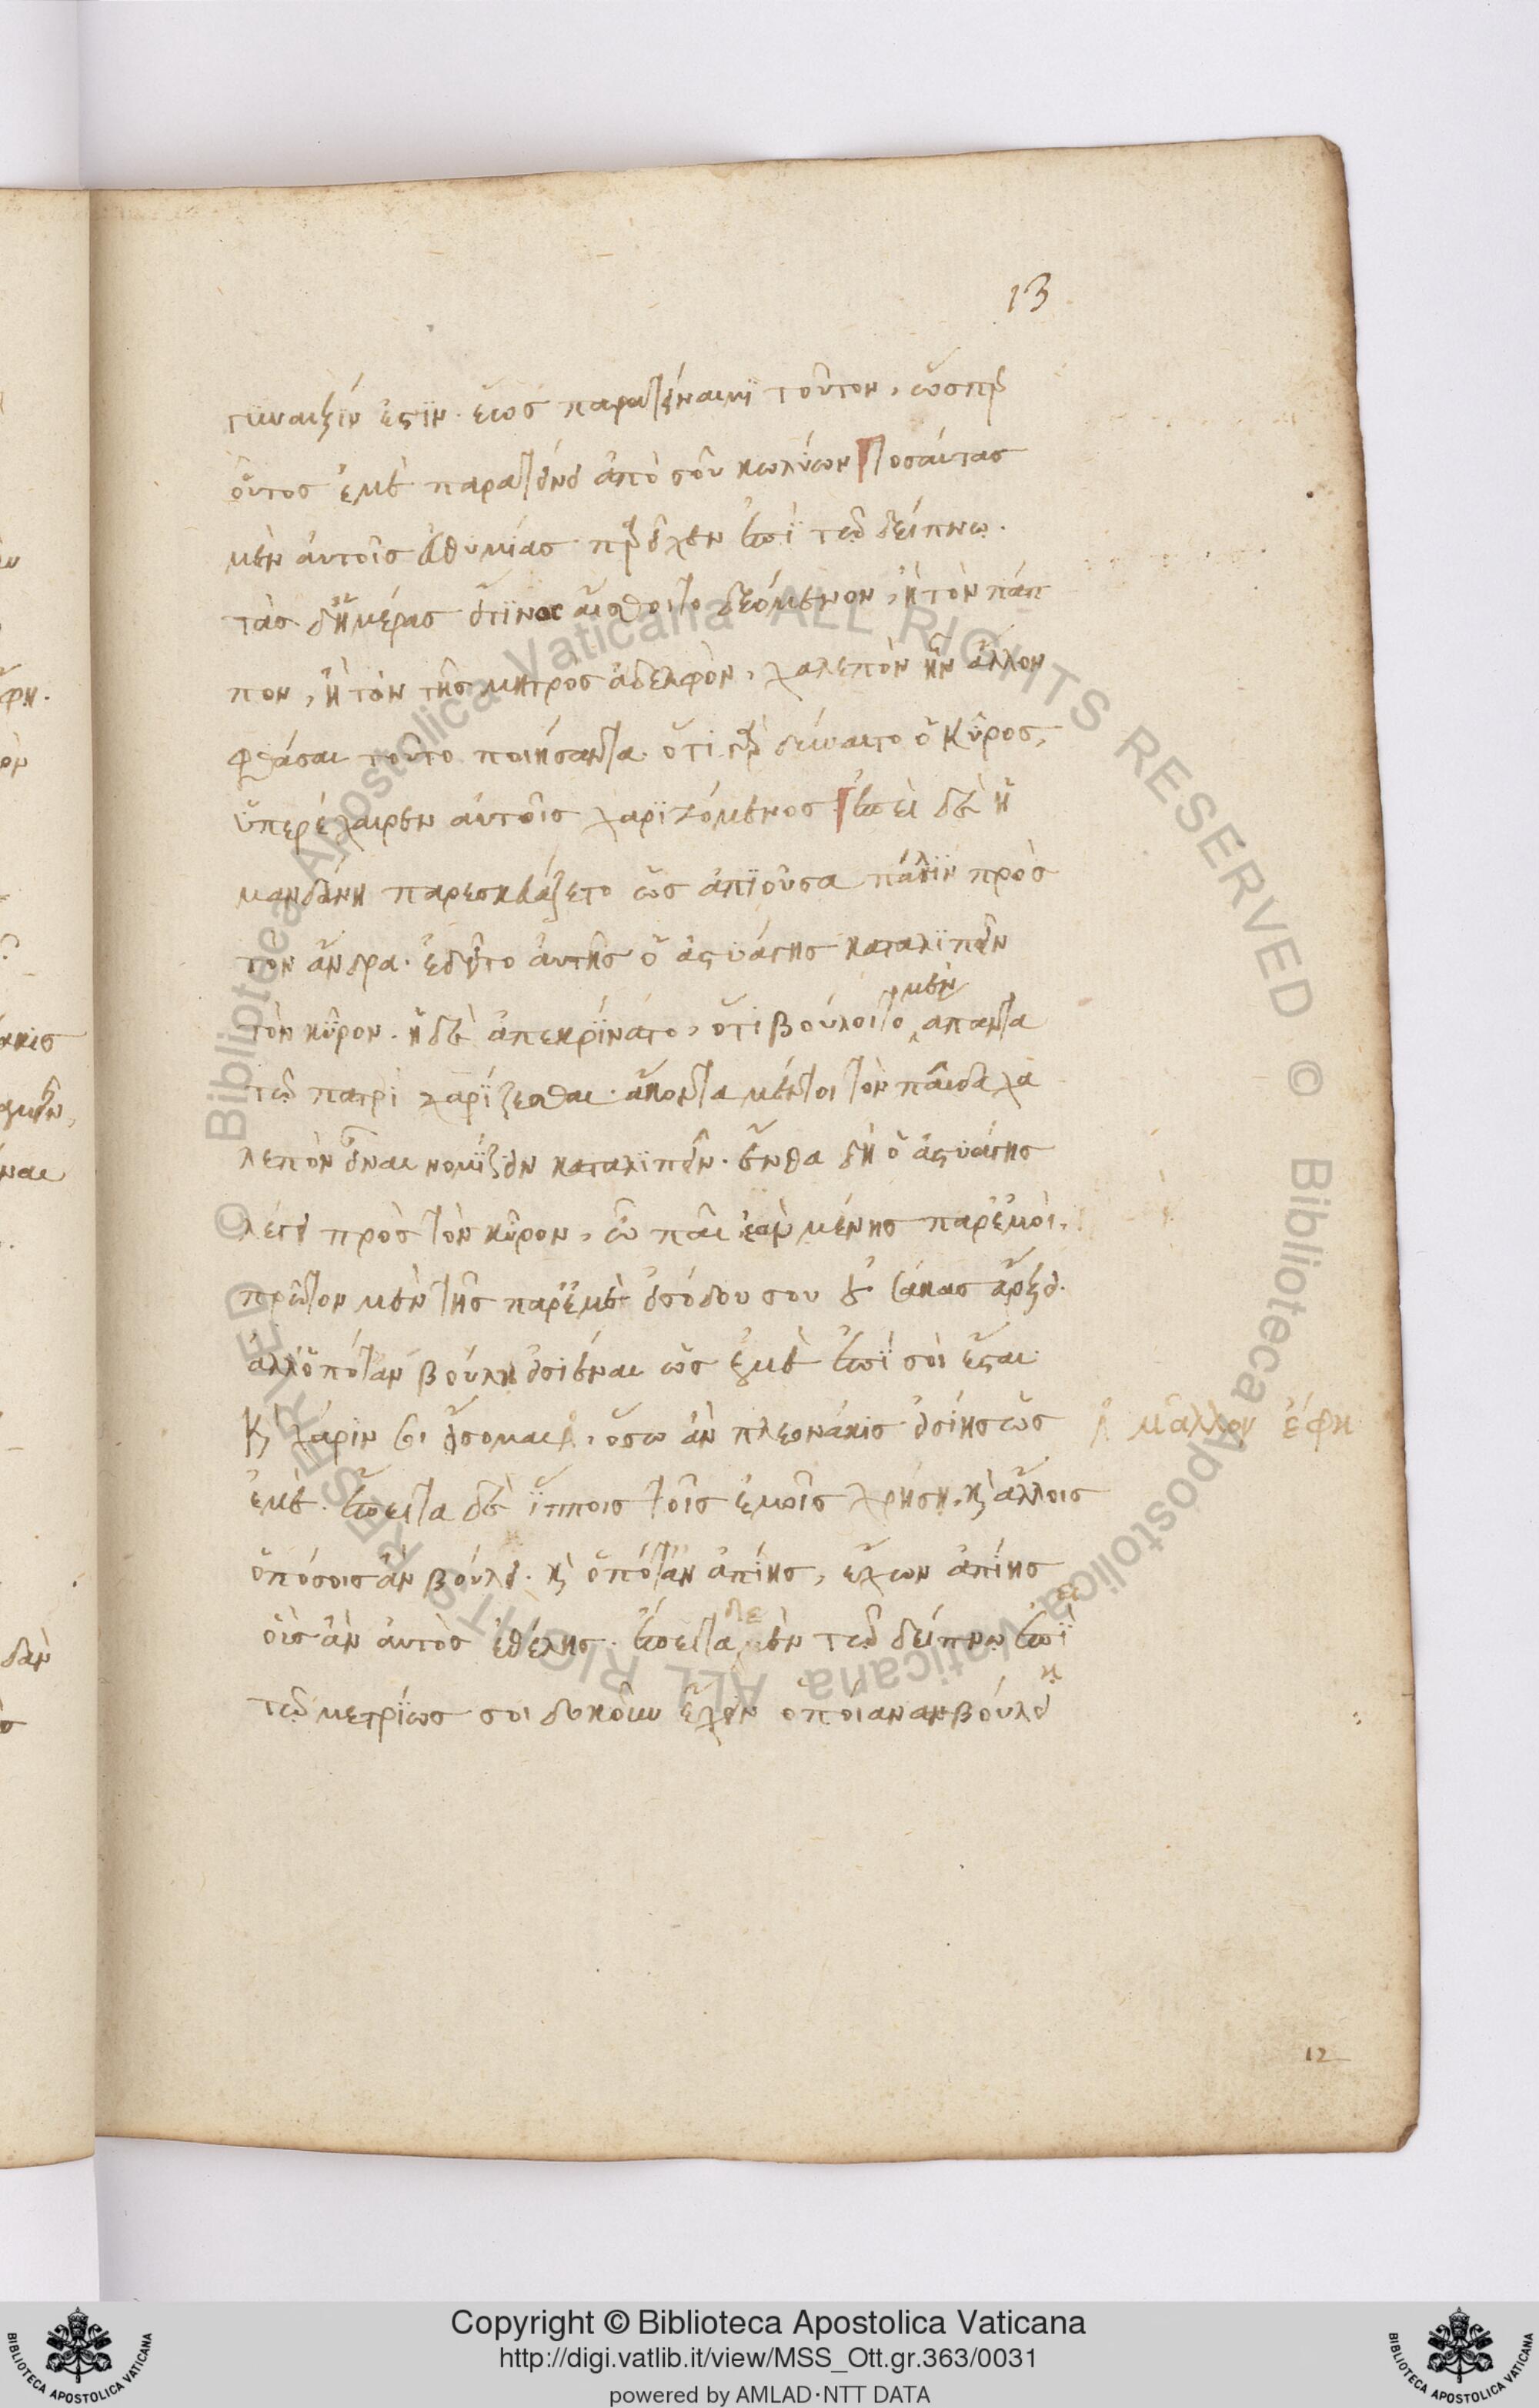 13
γυναιξίν ἐστϊν. ἕως παρατείναιμϊ τοῦτον, ὥσπερ
οὗτος ἐμὲ παρατείνει ἀπὸ σοῦ κωλύων τοσαύτας
μὲν αὐτοῖς εὐθυμίας παρεῖχεν ἐπὶ τῷ δείπνῳ.
τὰς δ' ἡμέρας εἴ τινος αἴσθοιτο δεόμενον, ἢ τὸν πάπ
πον, ἢ τὸν τῆς μητρὸς ἀδελφὸν, χαλεπὸν ἦν ἄλλον
φθάσαι τοῦτο ποιήσαντα. ὅτι γὰρ δύναιτο ὁ κῦρος,
ὑπερέχαιρεν αὐτοῖς χαρϊζόμενος ἐπεὶ δὲ ἡ
μανδάνη παρεσκευάζετο ὡς ἀπϊοῦσα πάλϊν πρὸς
τὸν ἄνδρα. ἐδεῖτο αὐτῆς ὁ ἀστυάγης καταλϊπεῖν
τὸν κῦρον. ἡ δὲ ἀπεκρίνατο, ὅτι βούλοιτο μὲν ἅπαντα
τῷ πατρὶ χαρίζεσθαι. ἄκοντα μέντοι τὸν παῖδα χα
λεπὸν εἶναι νομίζειν καταλϊπεῖν. ἔνθα δὴ ὁ ἀστυάγης
λέγει πρὸς τὸν κῦρον, ὦ παῖ ἐὰν μένης παρ' ἐμοὶ,
πρῶτον μὲν τῆς παρ' ἐμὲ εἰσόδου σου οὐ σάκας ἄρξει.
ἀλλ' ὁπόταν βούλῃ εἰσιέναι ὡς ἐμὲ ἐπὶ σοὶ ἔσται.
καὶ χάριν σοι εἴσομαι, ὅσω ἂν πλεονάκις εἰσίης ὡς
μᾶλλον ἔφη
ἐμὲ. ἔπειτα δὲ ἵπποις τοῖς ἐμοῖς χρήσῃ, καὶ ἄλλοις
ὁπόσοις ἂν βούλει. καὶ ὁπόταν ἀπίης, ἔχων ἀπίης
οἷς ἂν αὐτὸς ἐθέλης. ἔπειτα μὲν τῷ δείπνῳ ἐπὶ
δε
τῷ μετρίως σοι δοκοῦν ἔχειν ὁποίαν ἂν βούλει
12
Copyright © Biblioteca Apostolica Vaticana
http://digi.vatlib.it/view/MSS_Ott.gr.363/0031
powered by AMLAD·NTT DATA